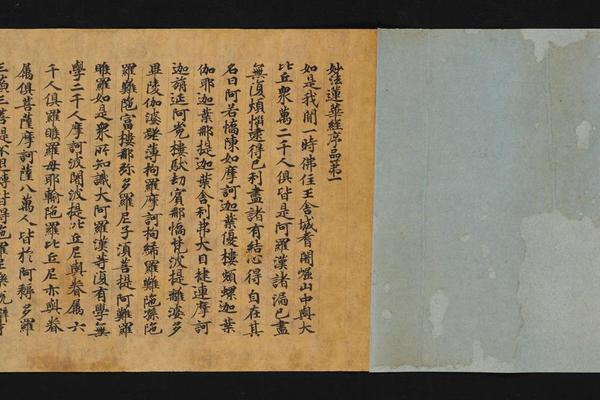 妙法蓮華經序品第一
如是我聞一時佛住王舍城耆闍崛山中與大
比丘衆萬二千人俱皆是阿羅漢諸漏已盡
無復煩惱逮得已利盡諸有結心得自在其
名曰阿若憍陳如摩訶迦葉優樓頻螺迦葉
伽耶迦葉那提迦葉舍利弗大目揵連摩訶
迦旃延阿㝹樓馱劫賓那憍梵波提離婆多
畢陵伽婆蹉薄拘羅摩訶拘絺羅難陁孫陁
羅難陁富樓那弥多羅尼子須菩提阿難羅
睺羅如是衆所知識大阿羅漢等復有學無
學二千人摩訶波闍波提比丘尼與眷属六
千人俱羅睺羅母耶輸陁羅比丘尼亦與眷
属俱菩薩摩訶薩八萬人皆於阿耨多羅
三藐三菩提不退轉皆得陁羅尼樂